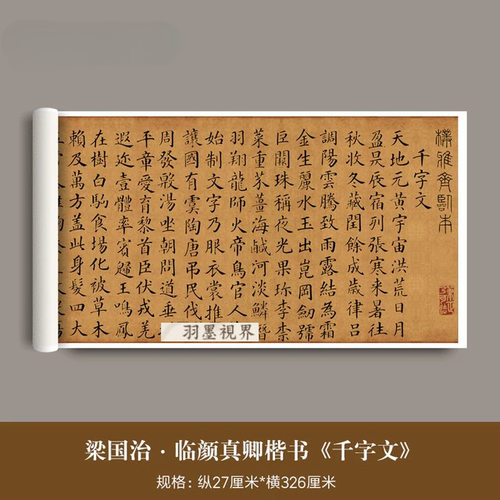 千字文
天地元黄宇宙洪荒日月
盈昃辰宿列張寒來暑往
秋收冬藏閏餘成歲律吕
調陽雲騰致雨露結為霜
金生麗水玉出崑岡劒號
巨闕珠稱夜光果珎李柰
菜重芥薑海鹹河淡鱗潛
羽翔龍師火帝鳥官人
始制文字乃服衣裳推
讓國有虞陶唐弔民伐
周發殷湯坐朝問道垂
平章愛育黎首臣伏戎羌
遐迩壹體率賓歸王鳴鳳
在樹白駒食場化被草木
賴及萬方盖此身髮四大
羽墨视界
梁国治·临颜真卿楷书《千字文》
规格:纵27厘米*横326厘米